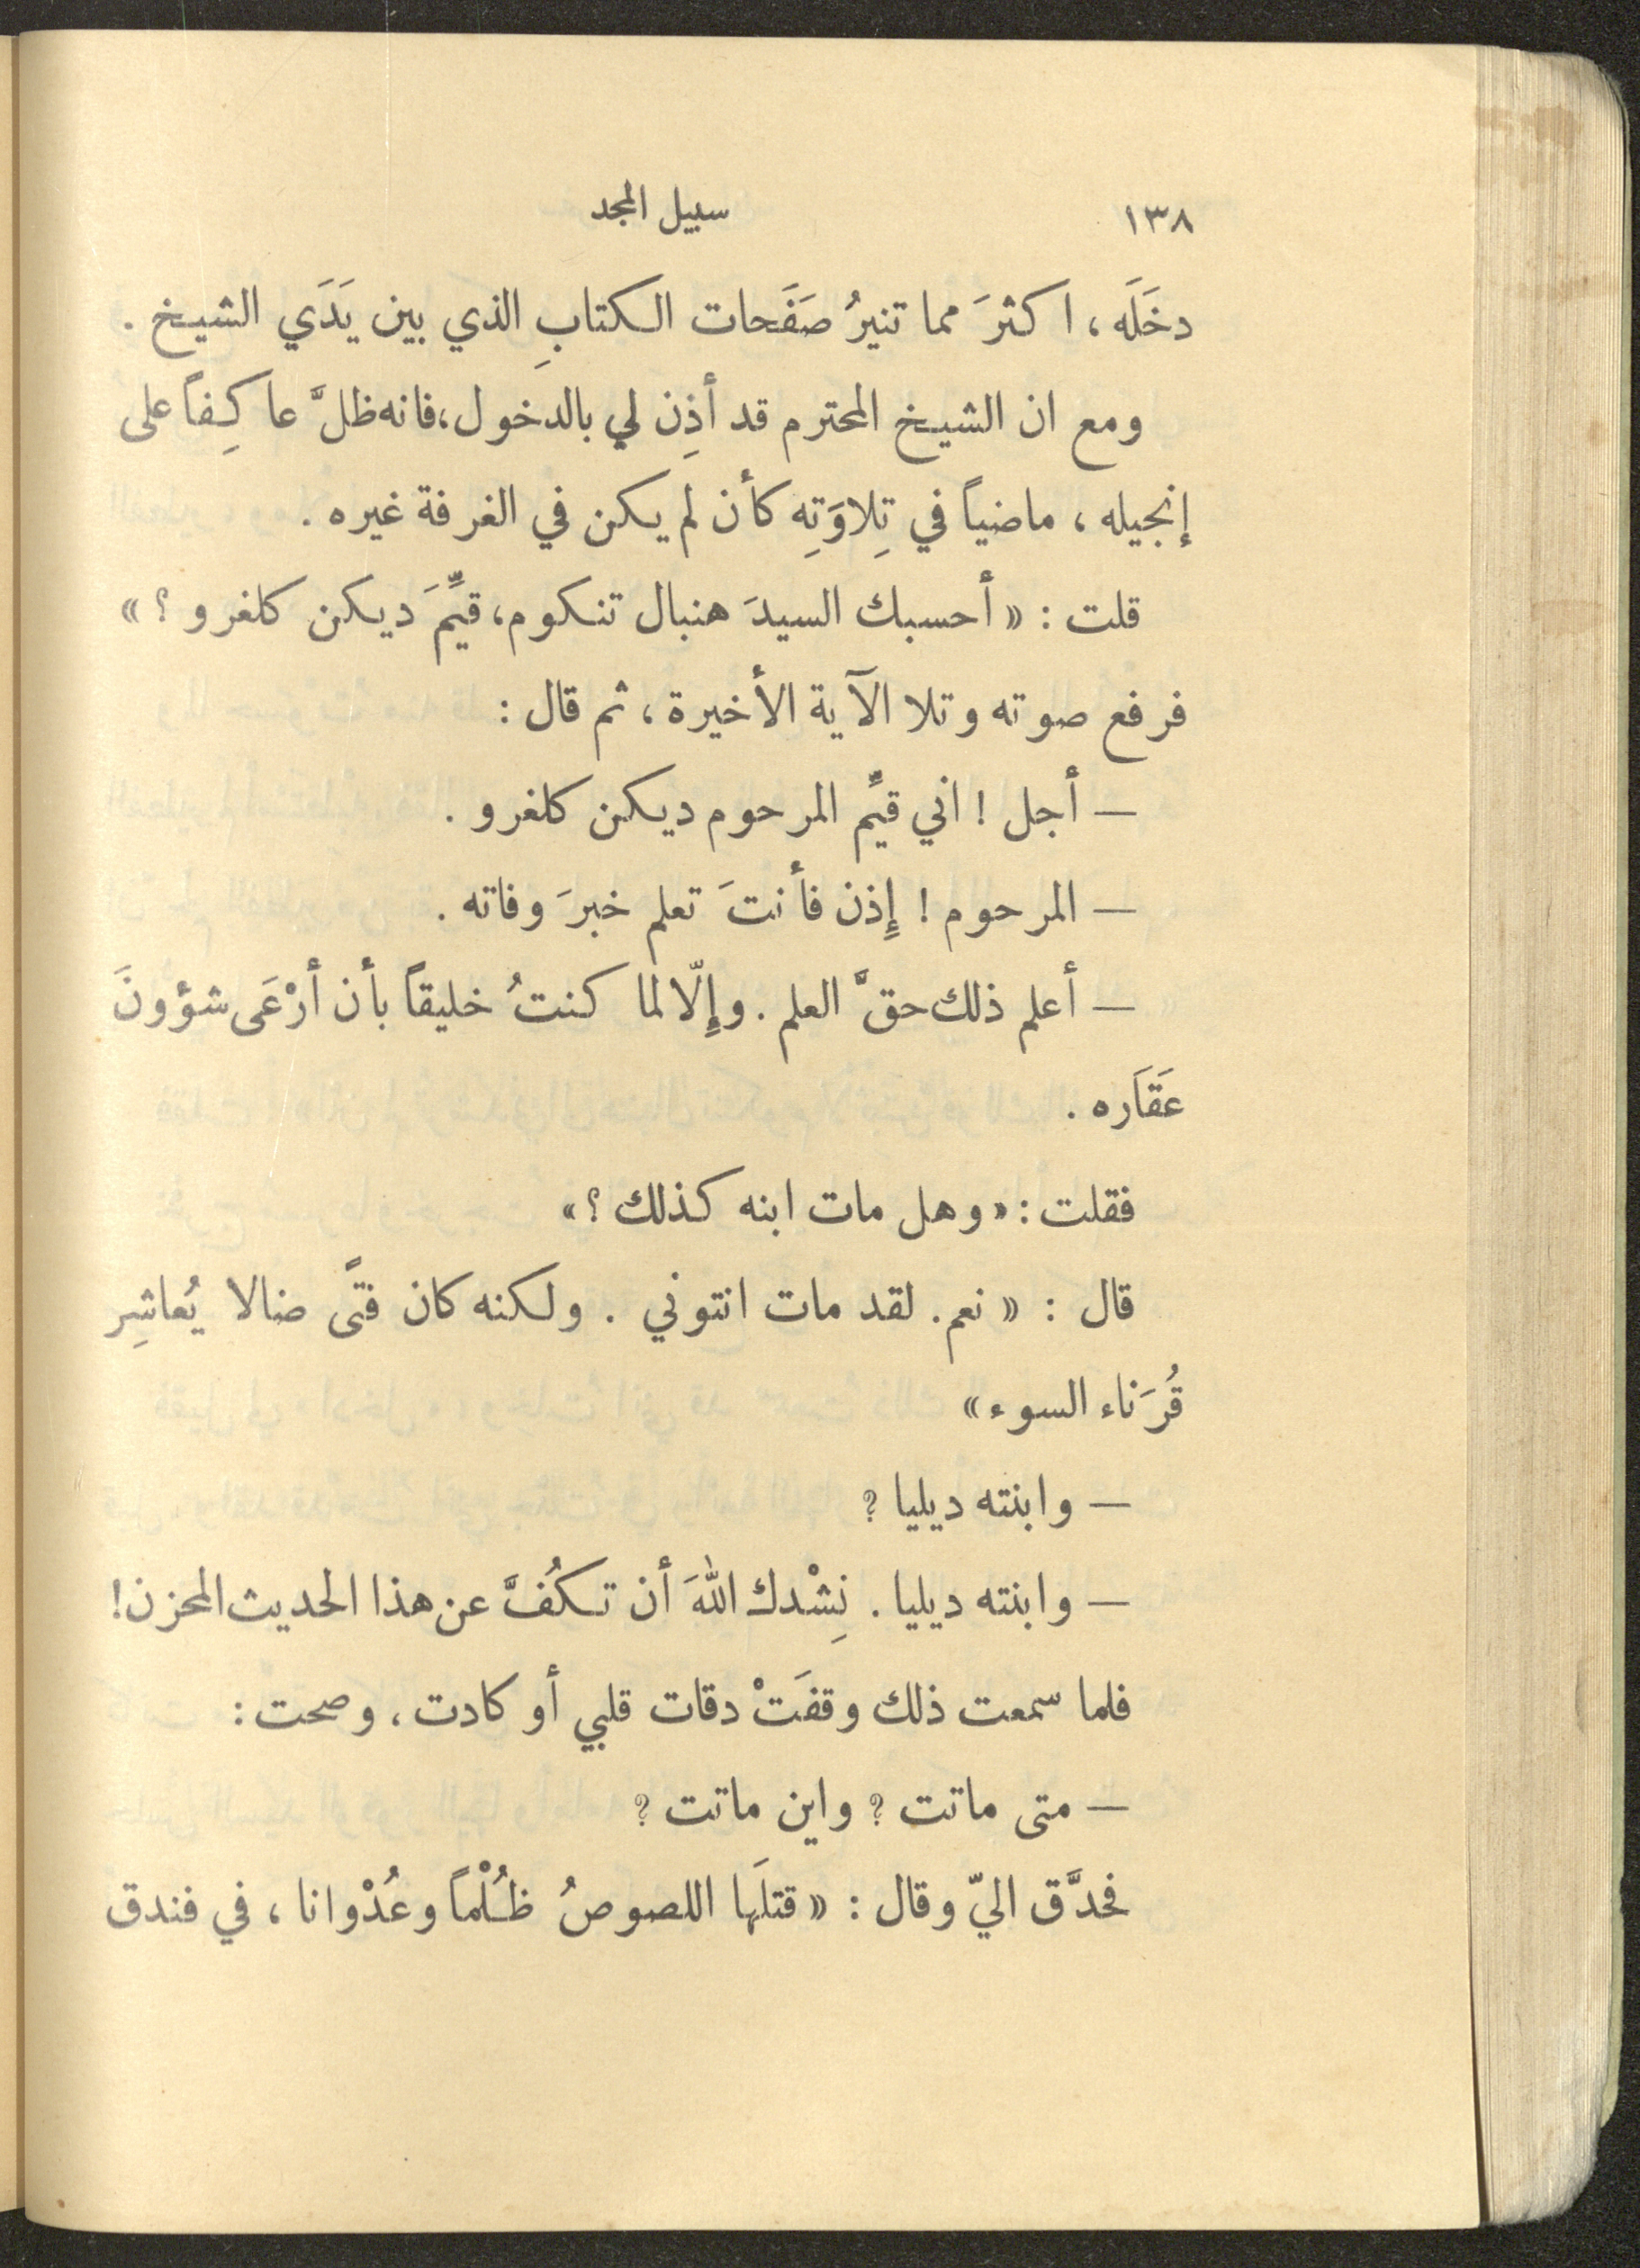 ١٣٨ سبيل المجد
دخَلَه ، اكثرَ مما تنيرُ صَفَحات الكتابِ الذي بين يَدَي الشيخ .
ومع ان الشيخ المحترم قد أذِن لي بالدخول، فانه ظلَّ عاكِفاً على
إنجيله ، ماضياً في تِلاوَتِه كأن لم يكن في الغرفة غيره .
قلت : « أحسبك السيدَ هنبال تنكوم، قيِّمَ ديكن كلغرو ؟ »
فرفع صوته وتلا الآية الأخيرة ، ثم قال :
— أجل ! اني قيِّم المرحوم ديكن كلغرو .
— المرحوم ! إِذن فأنتَ تعلم خبرَ وفاته .
— أعلم ذلك حقَّ العلم . وإِلّا لما كنتُ خليقاً بأن أرْعَى شؤونَ
عَقَاَره .
فقلت : « وهل مات ابنه كذلك ؟ »
قال : « نعم . لقد مات انتوني . ولكنه كان فتًى ضالا يُعاشِر
قُرَناء السوء »
— وابنته ديليا ؟
— وابنته ديليا . نِشْدك اللهَ أن تكُفَّ عن هذا الحديث المحزن !
فلما سمعت ذلك وقفَتْ دقات قلبي أو كادت ، وصحت :
— متى ماتت ؟ واين ماتت ؟
فحدَّق اليّ وقال : « قتلَها اللصوصُ ظُلْماً وعُدْوانا ، في فندق